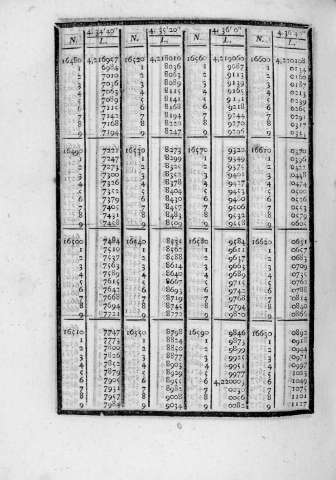 N. 4° 34' 40" N. 4° 35' 20" N. 4° 36' 0" N. 4° 36' 40"
L. L. L. L.
16480 4,216957 16520 4,218010 16560 4,219060 16600 4,220108
1 6984 1 8036 1 9087 1 0134
2 7010 2 8063 2 9113 2 0160
3 7036 3 8089 3 9139 3 0187
4 7063 4 8115 4 9165 4 0213
5 7089 5 8141 5 9191 5 0239
6 7115 6 8168 6 9218 6 0265
7 7142 7 8194 7 9244 7 0291
8 7168 8 8220 8 9270 8 0317
9 7194 9 8247 9 9296 9 0343
16490 7221 16530 8273 16570 9322 16610 0370
1 7247 1 8299 1 9349 1 0396
2 7273 2 8325 2 9375 2 0422
3 7300 3 8352 3 9401 3 0448
4 7326 4 8378 4 9427 4 0474
5 7352 5 8404 5 9453 5 0500
6 7379 6 8430 6 9480 6 0527
7 7405 7 8457 7 9506 7 0553
8 7431 8 8483 8 9532 8 0579
9 7458 9 8509 9 9558 9 0605
16500 7484 16540 8535 16580 9584 16620 0631
1 7510 1 8562 1 9611 1 0657
2 7537 2 8588 2 9637 2 0683
3 7563 3 8614 3 9663 3 0709
4 7589 4 8640 4 9689 4 0735
5 7615 5 8667 5 9715 5 0762
6 7642 6 8693 6 9742 6 0788
7 7668 7 8719 7 9768 7 0814
8 7694 8 8745 8 9794 8 0840
9 7721 9 8772 9 9820 9 0866
16510 7747 16550 8798 16590 9846 16630 0892
1 7773 1 8824 1 9873 1 0918
2 7800 2 8850 2 9899 2 0944
3 7826 3 8877 3 9925 3 0971
4 7852 4 8903 4 9951 4 0997
5 7879 5 8929 5 9977 5 1023
6 7905 6 8955 6 4,220003 6 1049
7 7931 7 8982 7 0030 7 1075
8 7958 8 9008 8 0056 8 1101
9 7984 9 9034 9 0082 9 1127